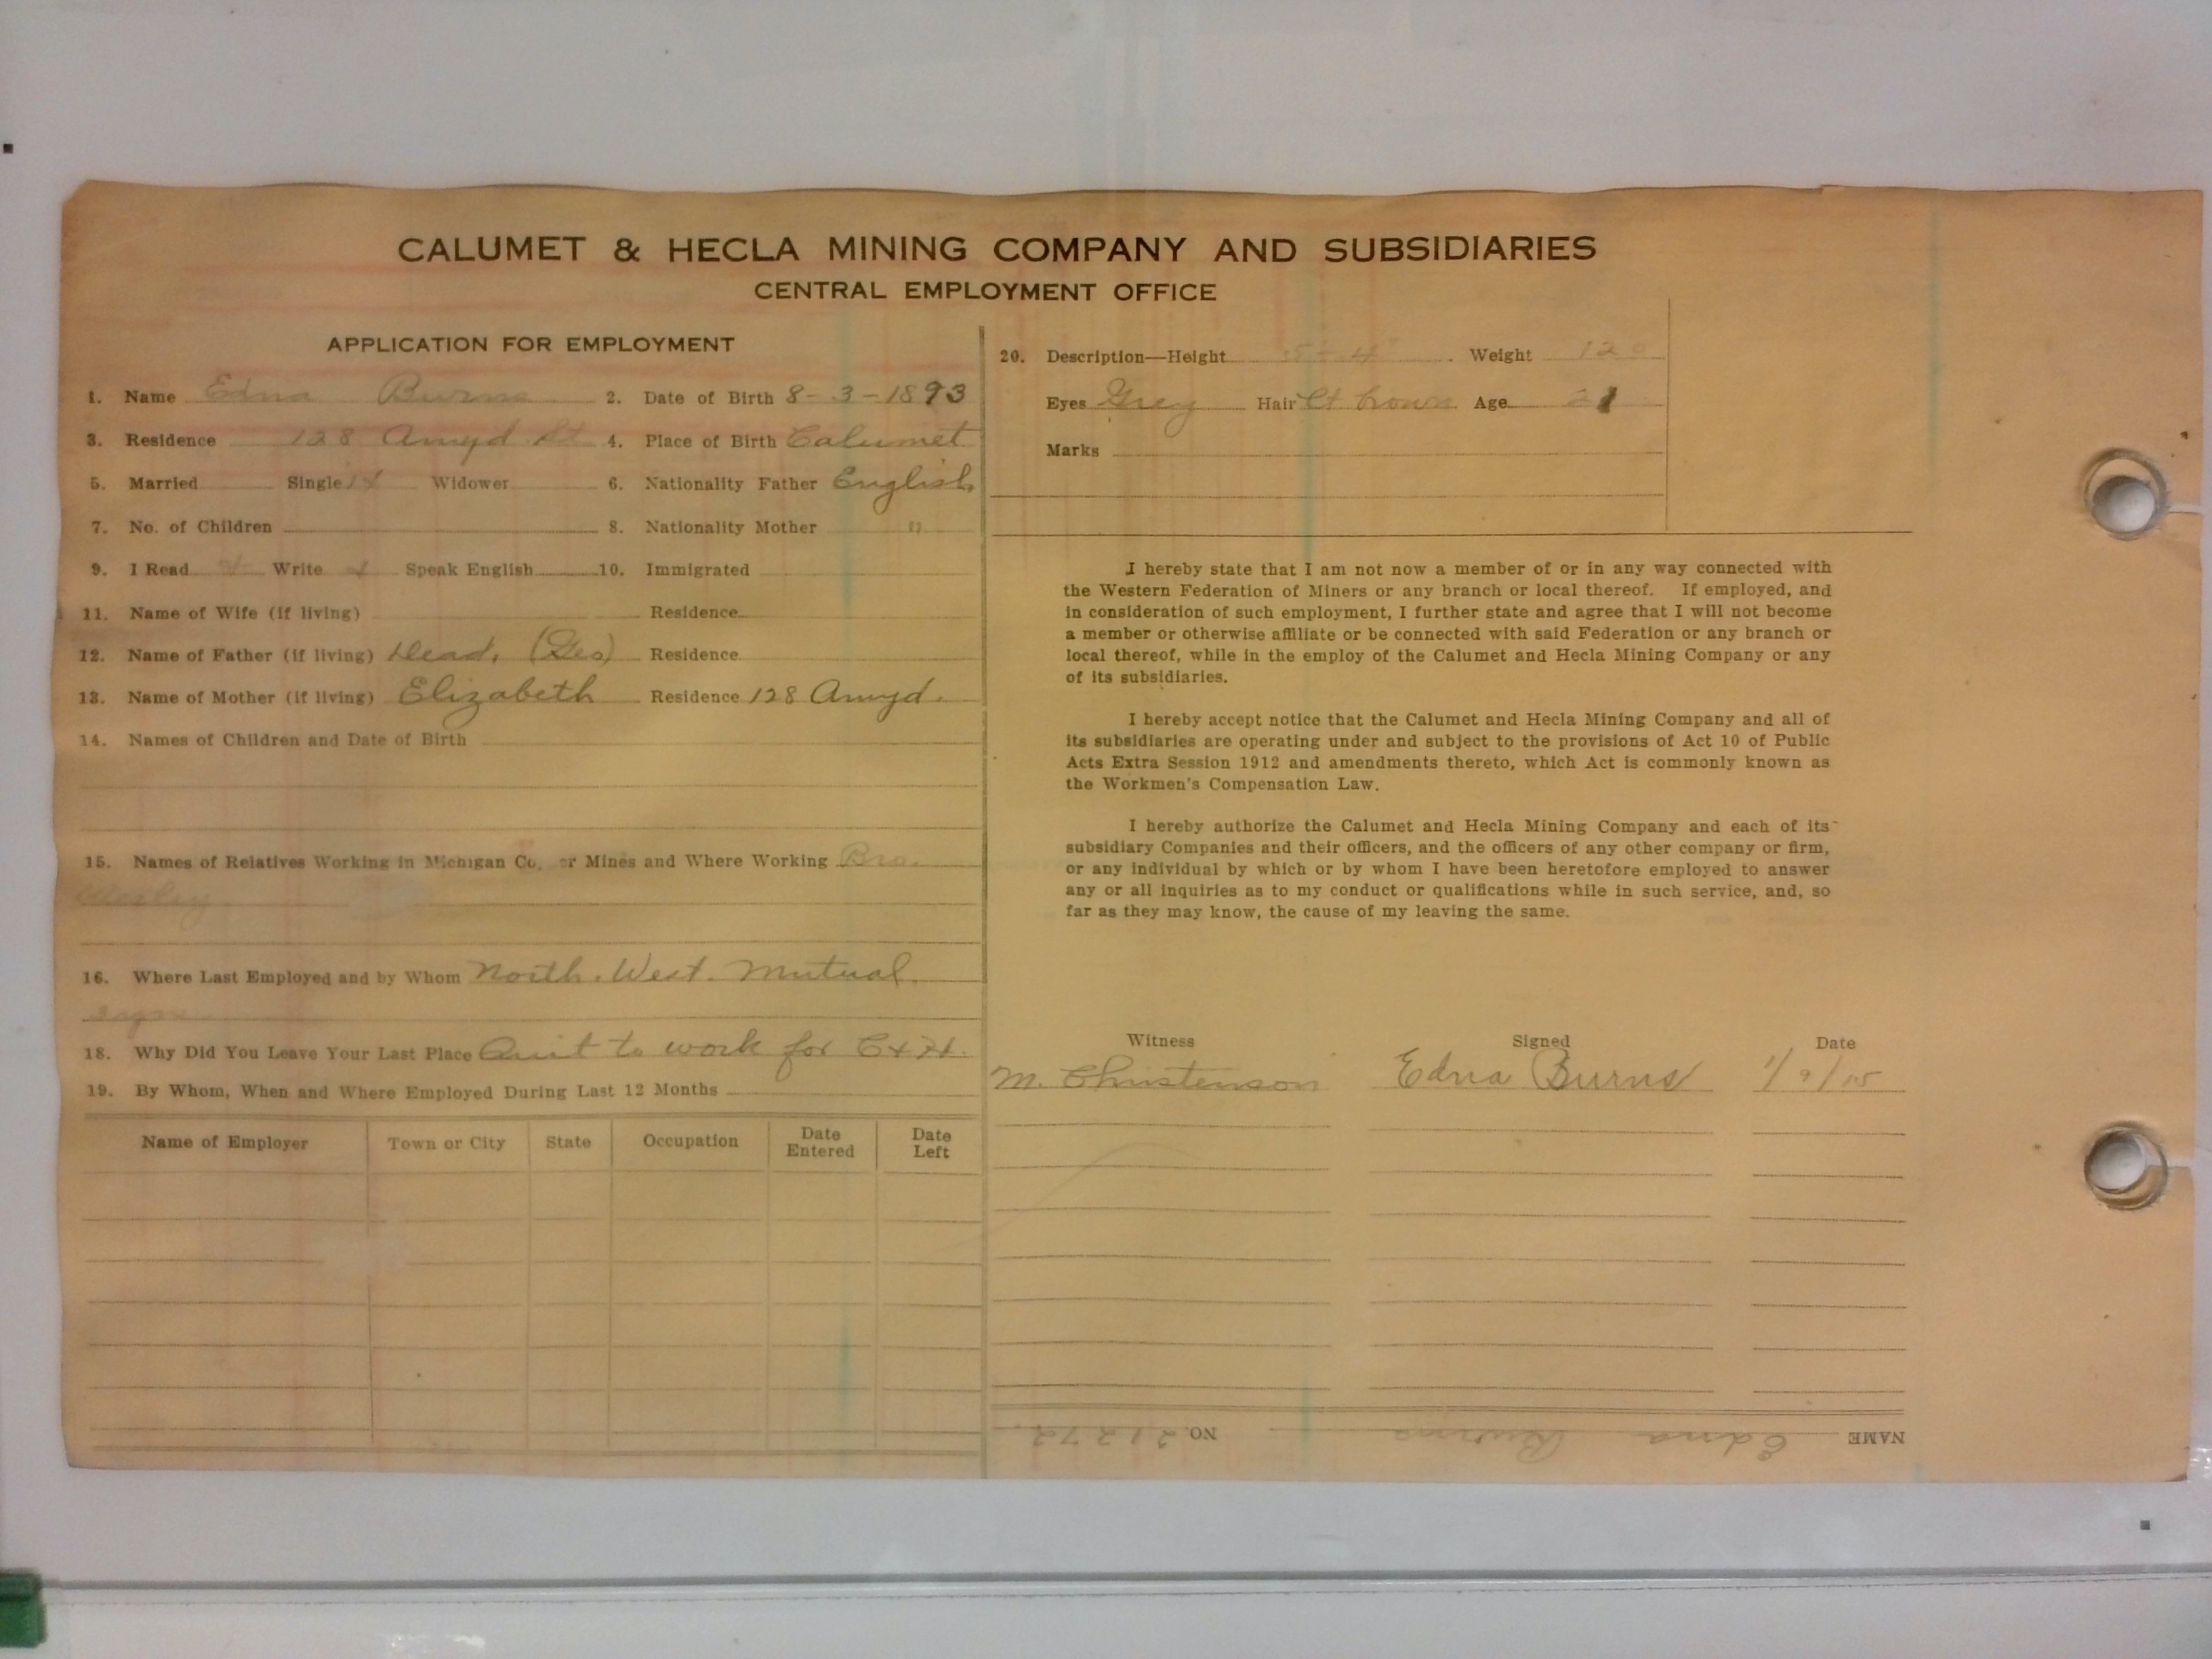 CALUMET & HECLA MINING COMPANY AND SUBSIDIARIES
CENTRAL EMPLOYMENT OFFICE
APPLICATION FOR EMPLOYMENT
1. Name Edna Burns 2. Date of Birth 8-3-1893
3. Residence 128 Amyd St 4. Place of Birth Calumet
5. Married Single Widower 6. Nationality Father English
7. No. of Children 8. Nationality Mother "
9. I Read Write Speak English 10. Immigrated
11. Name of Wife (if living) Residence
12. Name of Father (if living) Dead, (Geo) Residence
13. Name of Mother (if living) Elizabeth Residence 128 Amyd.
14. Names of Children and Date of Birth
15. Names of Relatives Working in Michigan Co. or Mines and Where Working Bro.
Wesley
16. Where Last Employed and by Whom North. West. Mutual.
18. Why Did You Leave Your Last Place Quit to work for C & H.
19. By Whom, When and Where Employed During Last 12 Months
Name of Employer Town or City State Occupation Date Entered Date Left
20. Description—Height 5-4 Weight 120
Eyes Grey Hair Lt brown Age 21
Marks
I hereby state that I am not now a member of or in any way connected with
the Western Federation of Miners or any branch or local thereof. If employed, and
in consideration of such employment, I further state and agree that I will not become
a member or otherwise affiliate or be connected with said Federation or any branch or
local thereof, while in the employ of the Calumet and Hecla Mining Company or any
of its subsidiaries.
I hereby accept notice that the Calumet and Hecla Mining Company and all of
its subsidiaries are operating under and subject to the provisions of Act 10 of Public
Acts Extra Session 1912 and amendments thereto, which Act is commonly known as
the Workmen's Compensation Law.
I hereby authorize the Calumet and Hecla Mining Company and each of its
subsidiary Companies and their officers, and the officers of any other company or firm,
or any individual by which or by whom I have been heretofore employed to answer
any or all inquiries as to my conduct or qualifications while in such service, and, so
far as they may know, the cause of my leaving the same.
Witness Signed Date
M. Christenson Edna Burns 1/9/15
NAME Edna Burns NO. 21272.